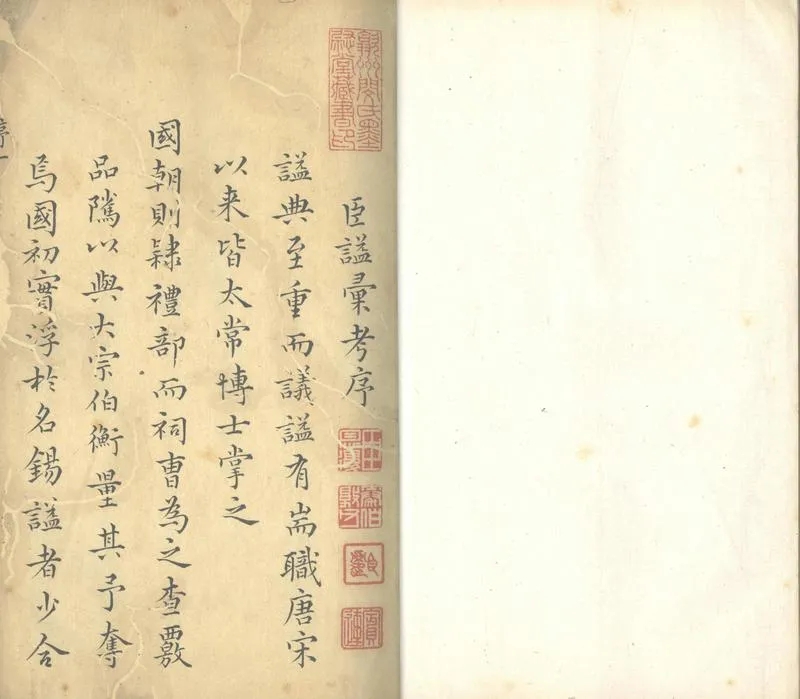 臣諡彚考序
諡典至重而議諡有耑職唐宋
以来皆太常博士掌之
國朝則隷禮部而祠曹為之查覈
品隲以與大宗伯衡量其予奪
焉國初實浮於名錫諡者少合
序一